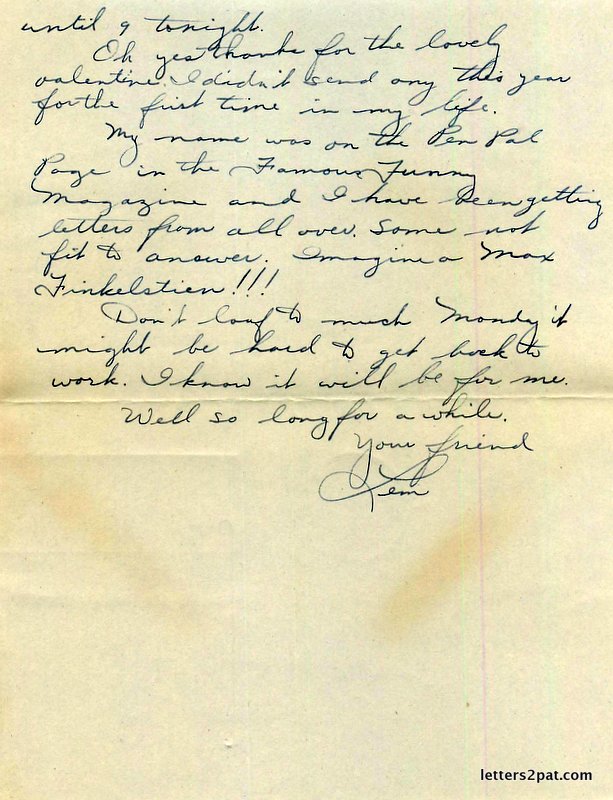 until 9 tonight.
Oh yes thanks for the lovely
valentine. I didn't send any this year
for the first time in my life.
My name was on the Pen Pal
Page in the Famous Funny
Magazine and I have been getting
letters from all over. Some not
fit to answer. Imagine a Max
Finkelstien!!!
Don't loaf to much Monday it
might be hard to get back to
work. I know it will be for me.
Well so long for a while.
Your friend
Lem
letters2pat.com